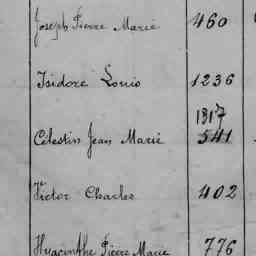 Joseph Pierre Marie 460
Isidore Louis 1236
1317
Célestin Jean Marie 541
Victor Charles 402
Hyacinthe Pierre Marie 776